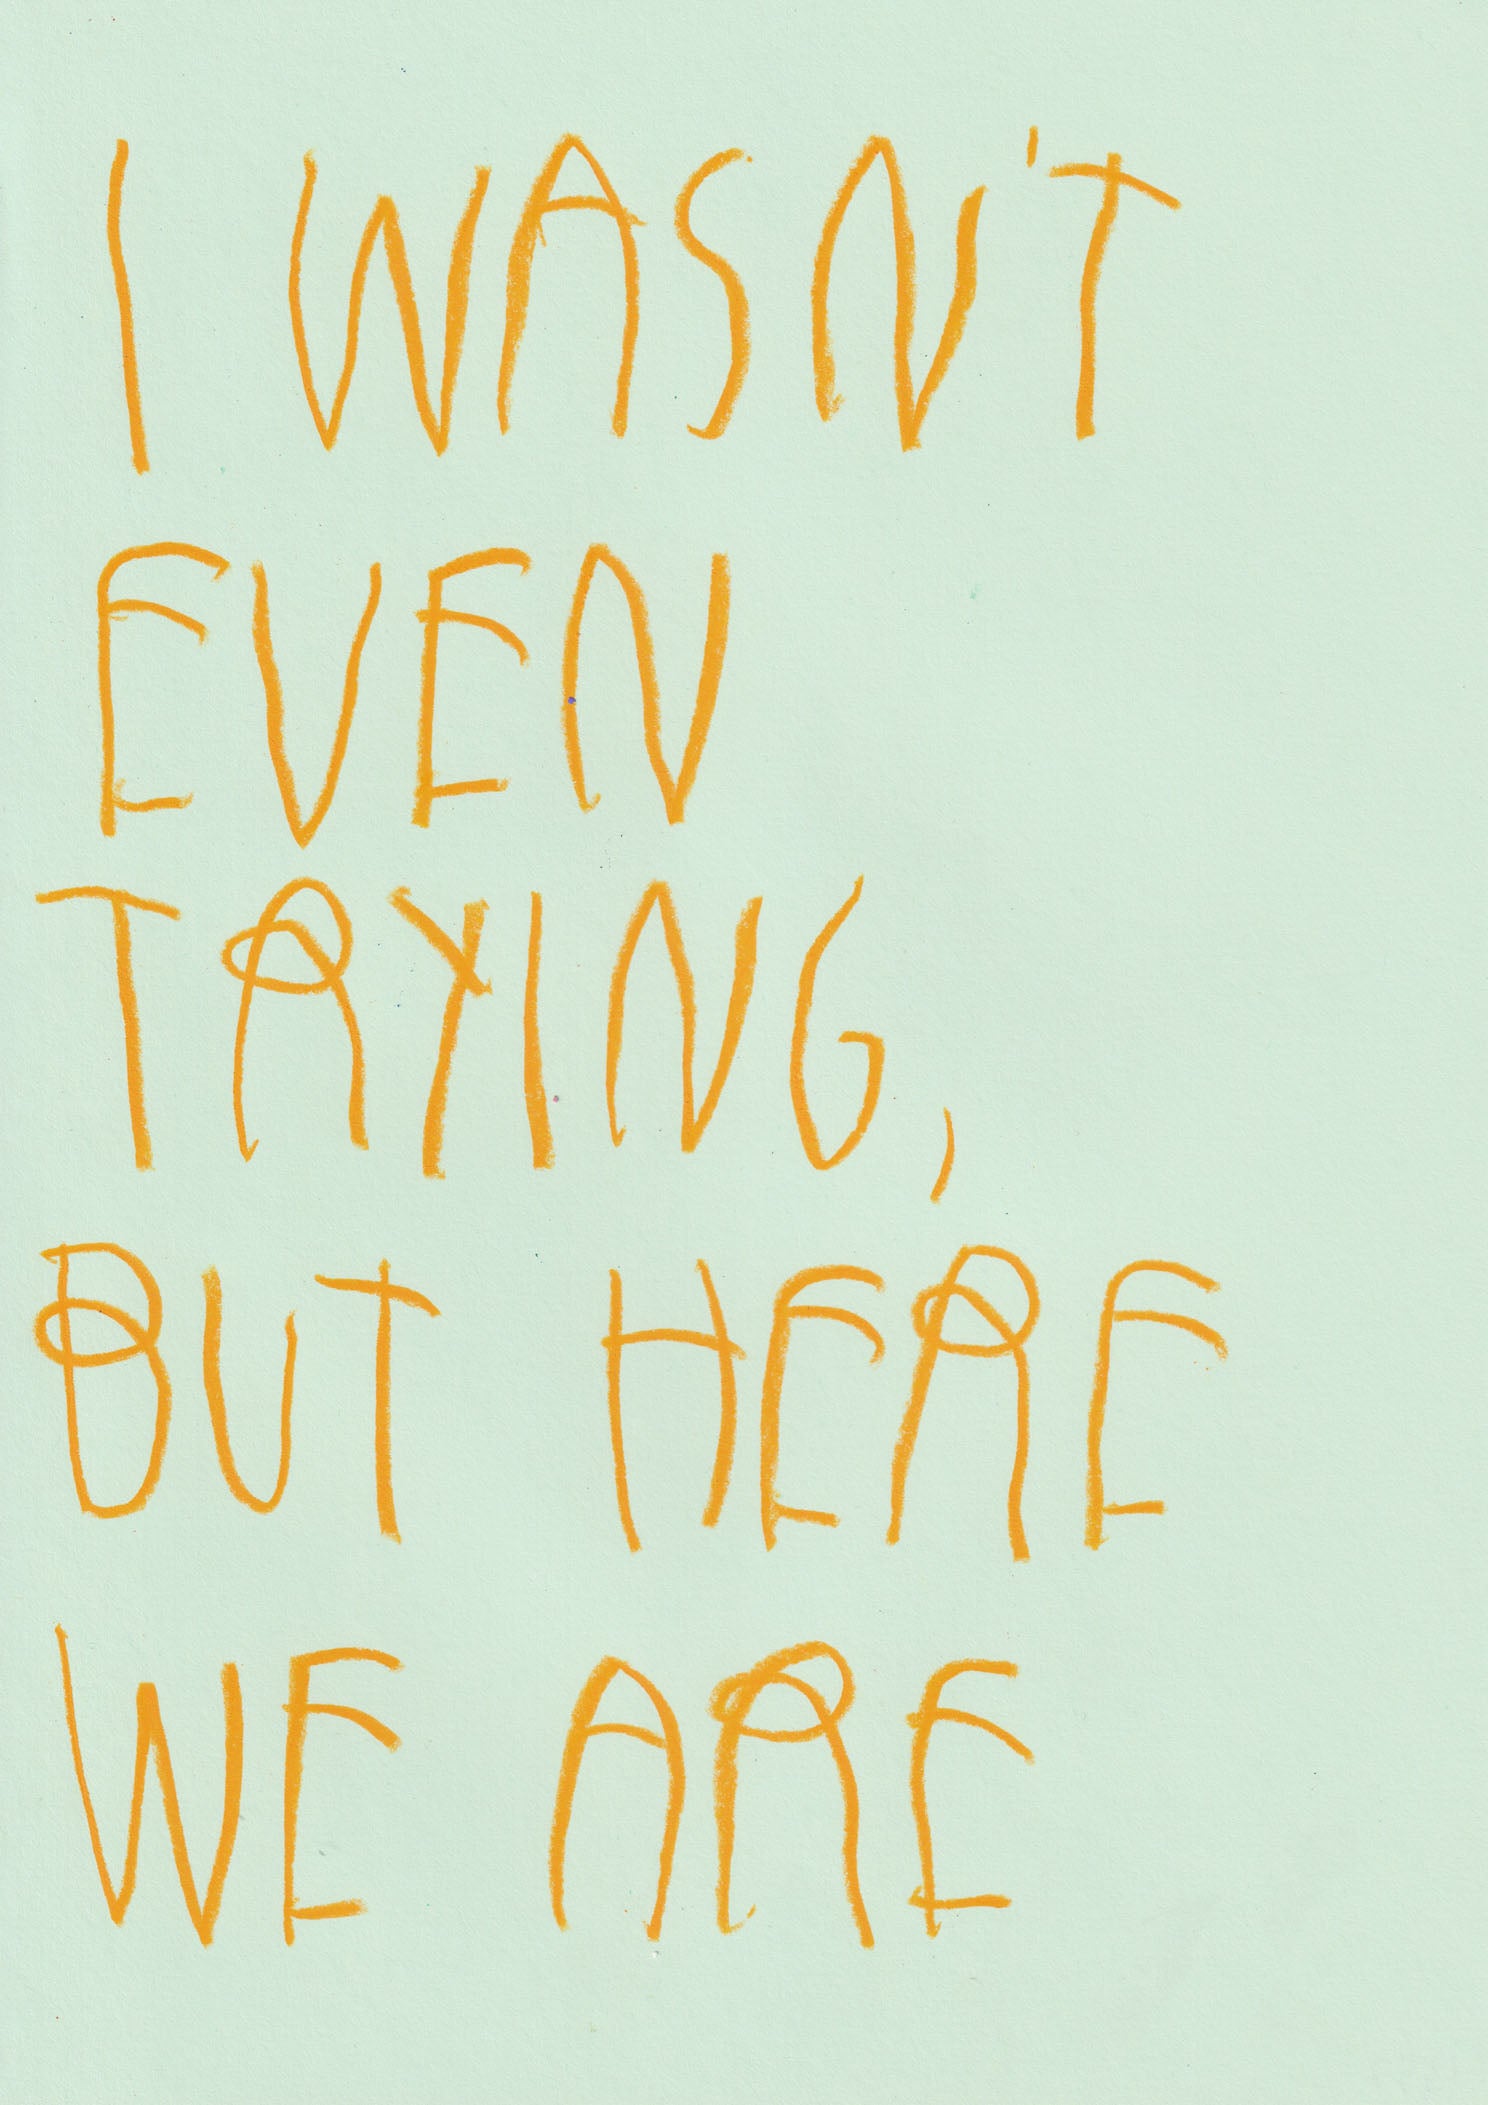 I WASN'T
EVEN
TRYING,
BUT HERE
WE ARE